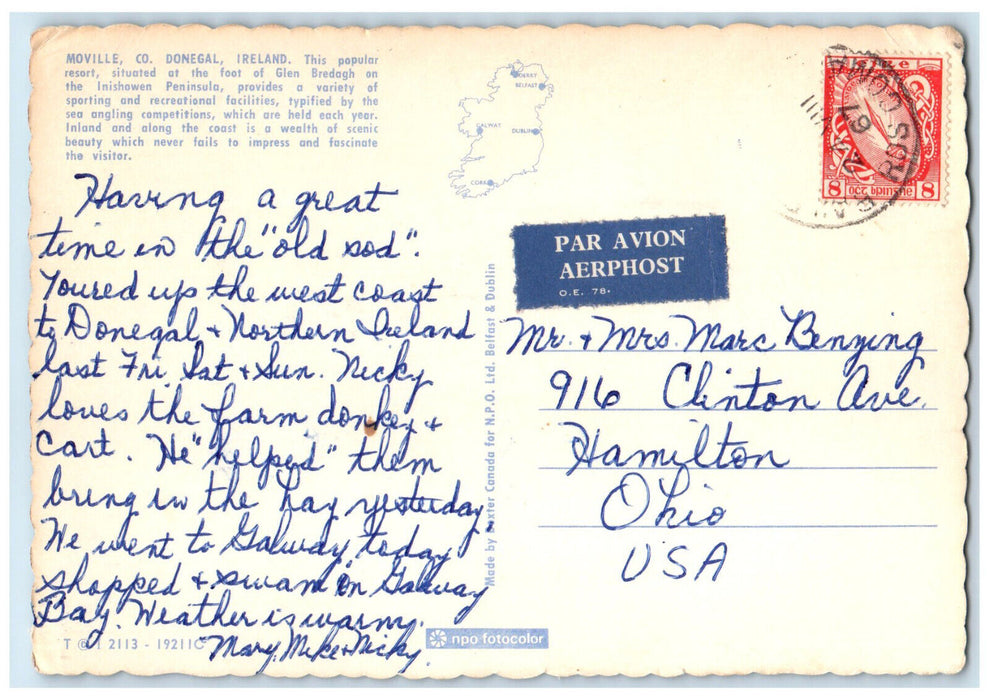 MOVILLE, CO. DONEGAL, IRELAND. This popular
resort, situated at the foot of Glen Bredagh on
the Inishowen Peninsula, provides a variety of
sporting and recreational facilities, typified by the
sea angling competitions, which are held each year.
Inland and along the coast is a wealth of scenic
beauty which never fails to impress and fascinate
the visitor.
DERRY
BELFAST
GALWAY
DUBLIN
CORK
Having a great
time in the "old sod".
Toured up the west coast
to Donegal + Northern Ireland
last Fri Sat + Sun. Nicky
loves the farm donkey +
cart. He "helped" them
bring in the hay yesterday
We went to Galway today
shopped + swam in Galway
Bay. Weather is warm.
Mary, Mike + Nicky.
T 2113 - 19211C
npo fotocolor
Made by Dexter Canada for N.P.O. Ltd. Belfast & Dublin
PAR AVION
AERPHOST
O.E. 78.
8 8
ROS COMÁ
67
Mr. + Mrs. Marc Benzing
916 Clinton Ave.
Hamilton
Ohio
USA